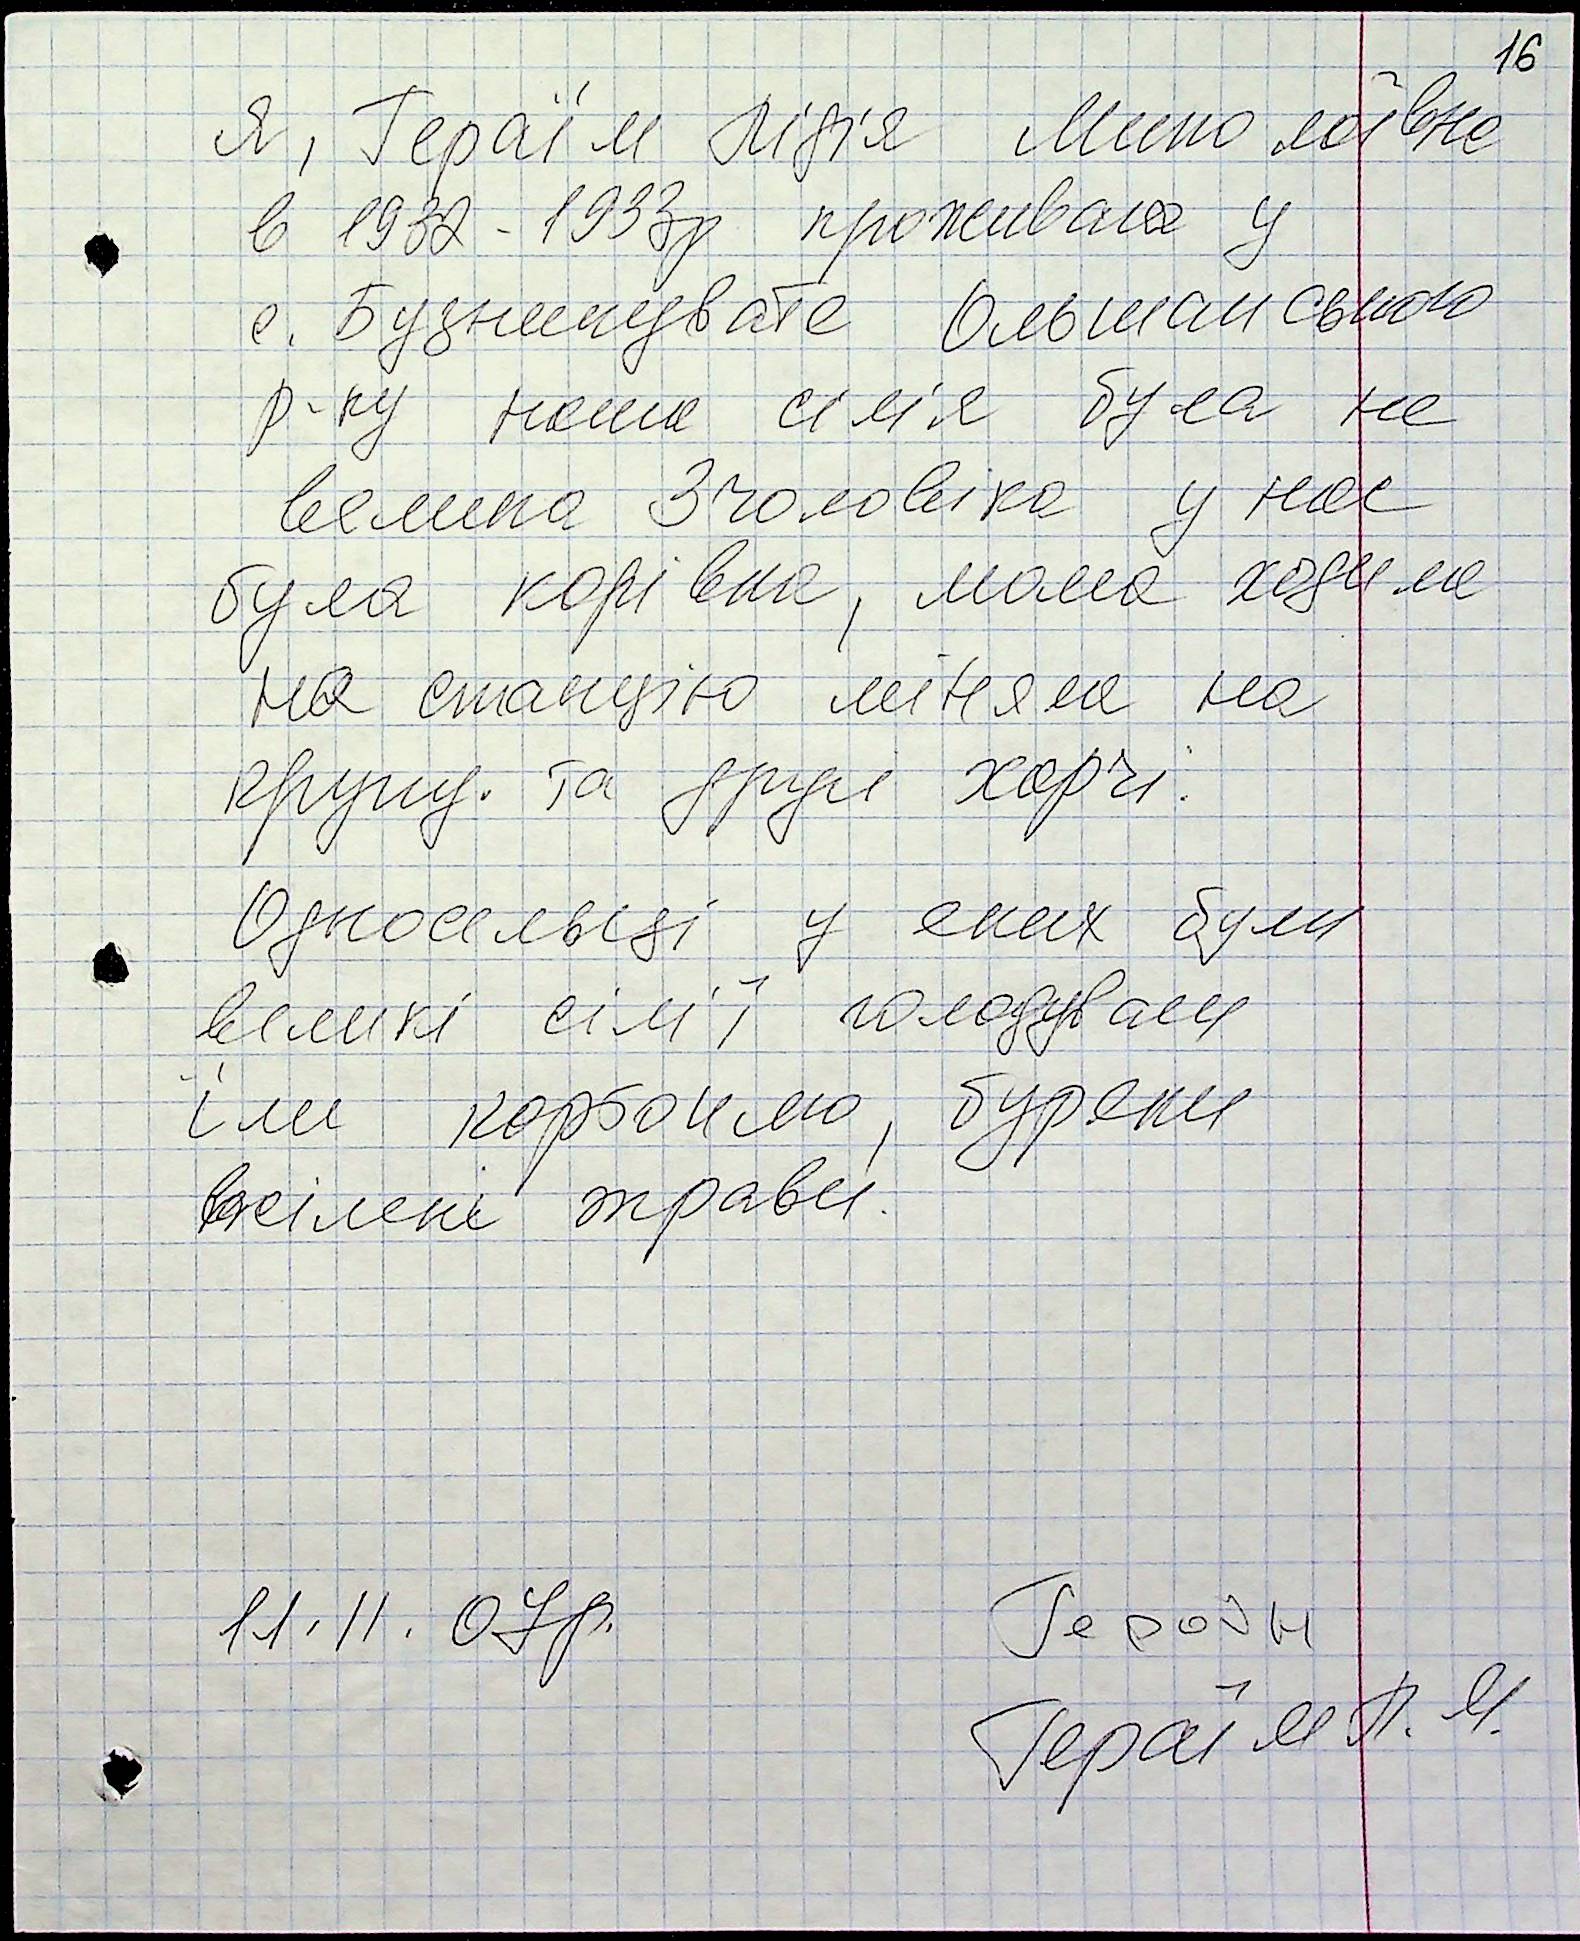 16
Я, Гераїм Лідія Миколаївна
в 1932-1933р проживала у
с. Бузникувате Ольшанською
р-ну наша сімя була не
велика 3 чоловіка у нас
була корівка, мама ходила
на станцію міняла на
крупу. та другі харчі.
Односельці у яких були
великі сім'ї голодували
їли кормочило, буряки
всілекі трави.
11.11.07р.
Гераїм Л. М.